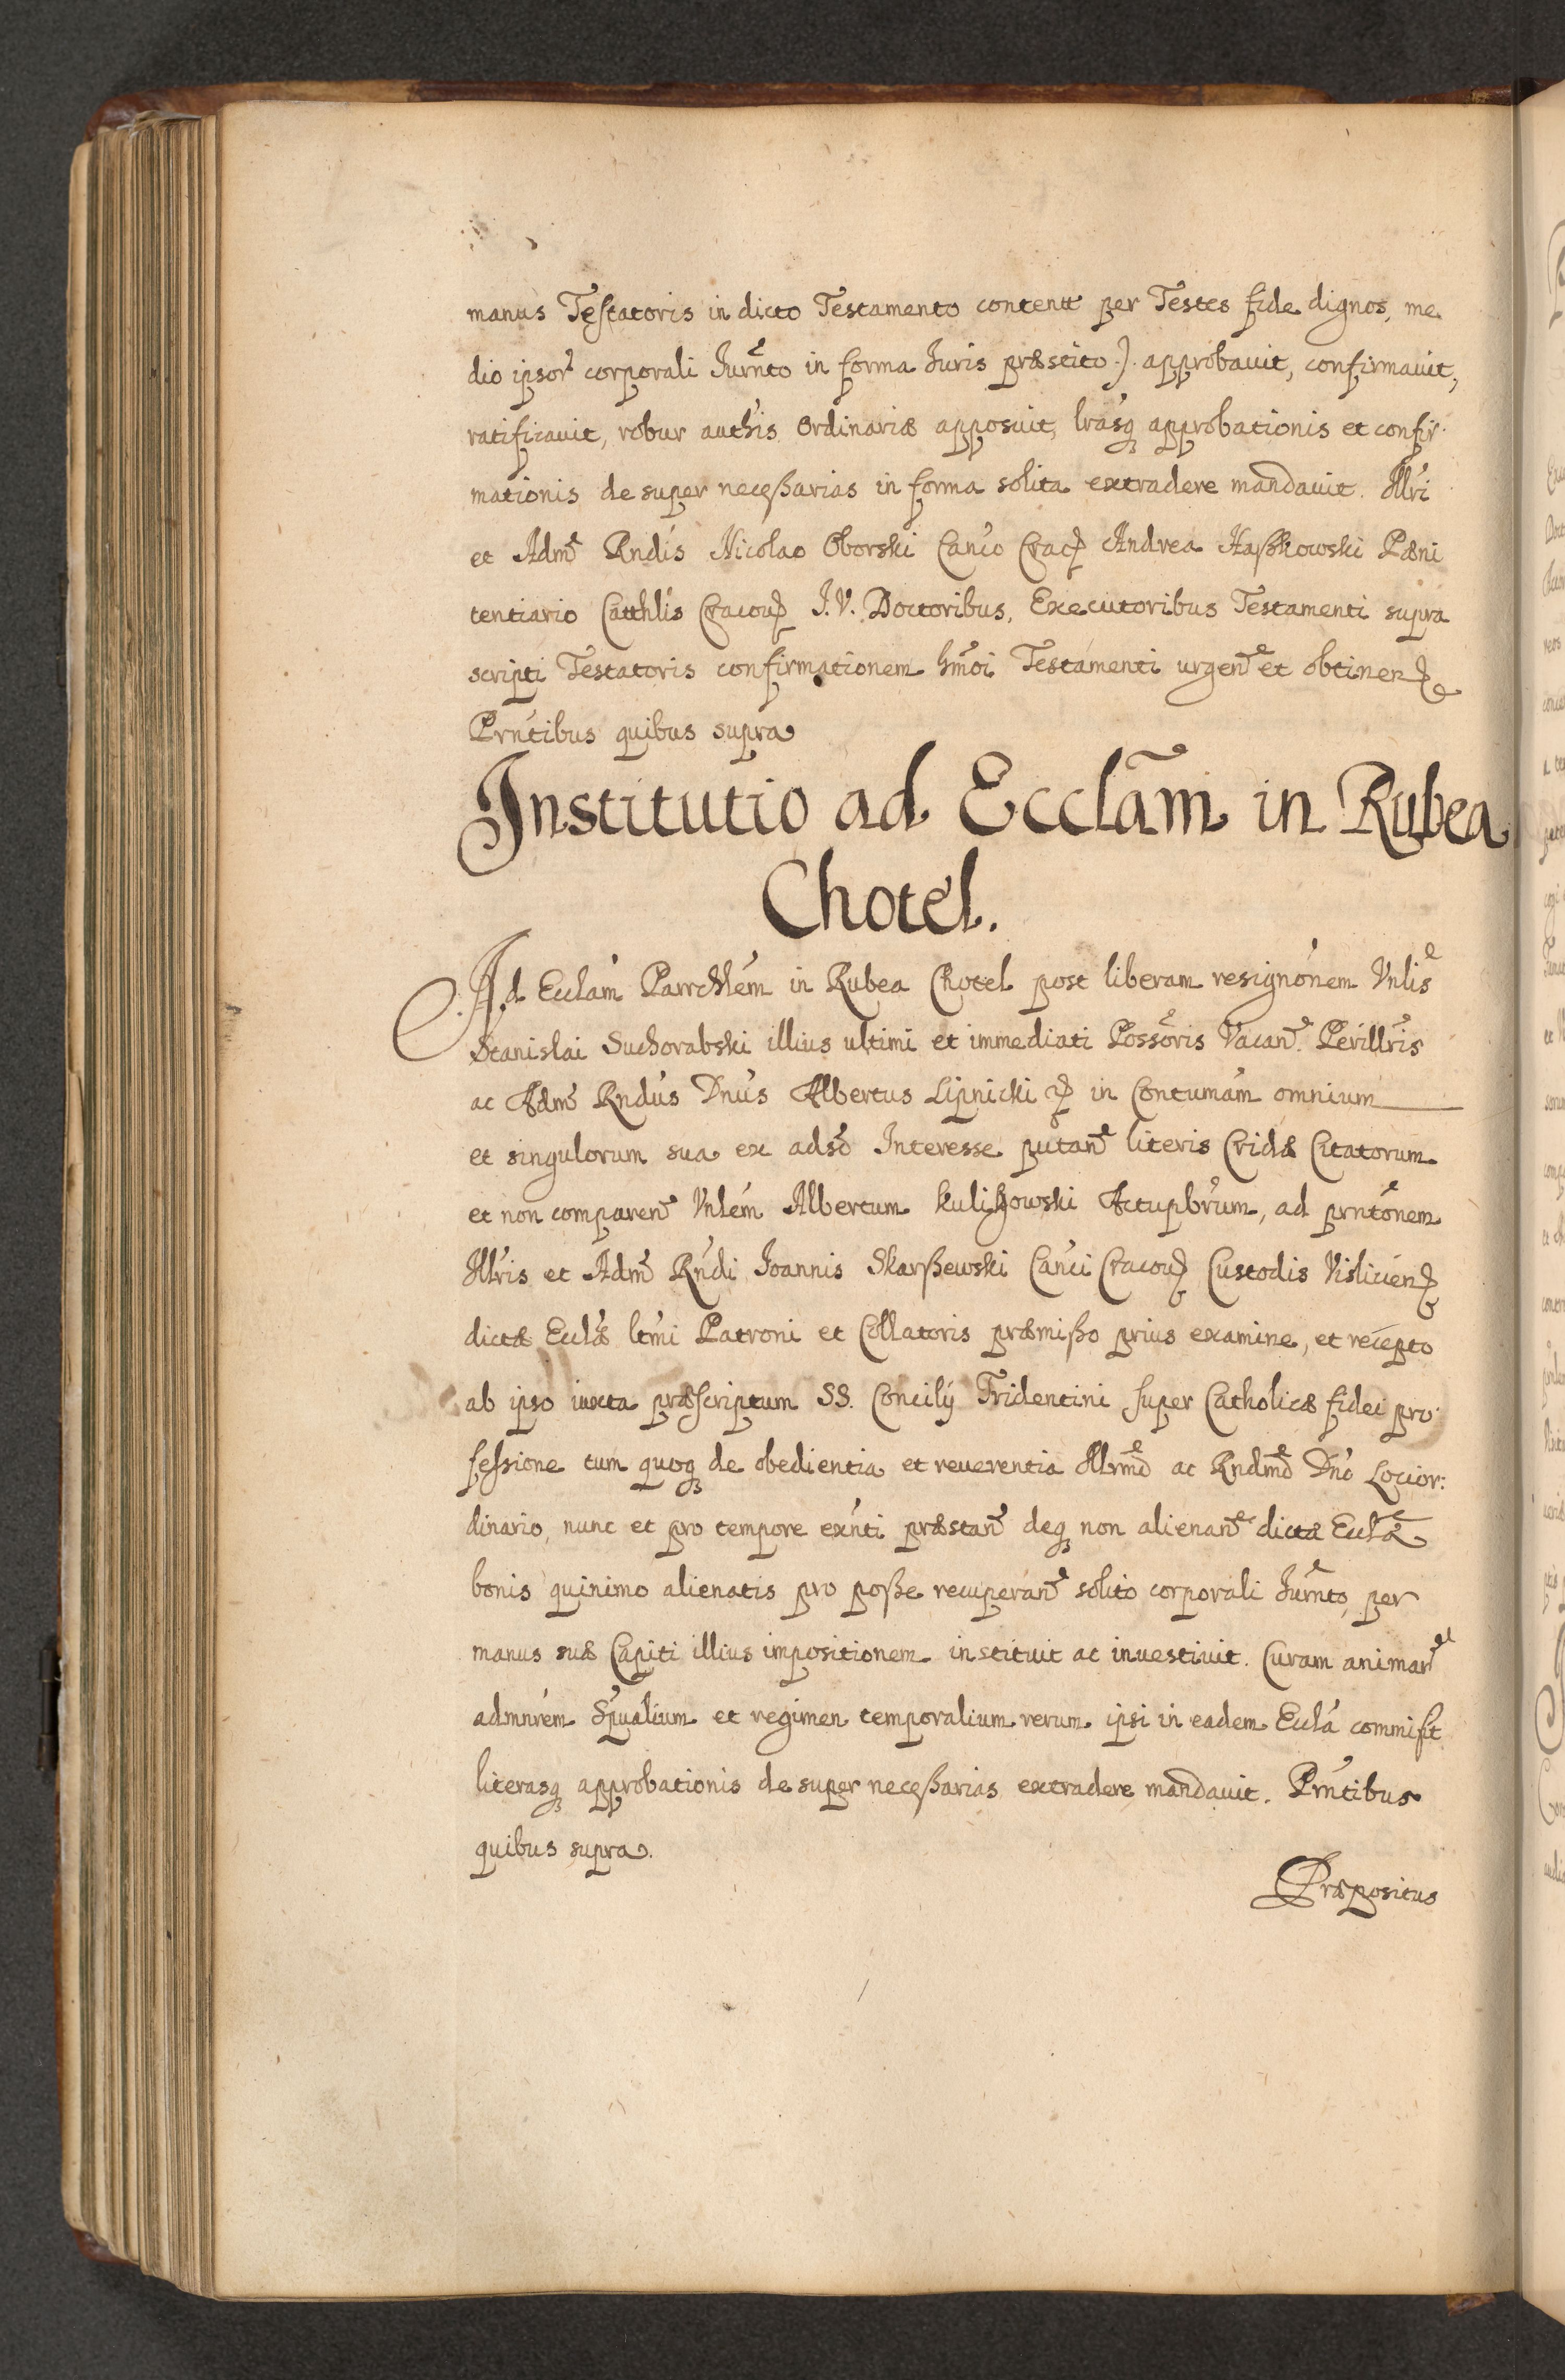 manus Testatoris in dicto Testamento contentt per Testes fide dignos, me
dio ipsor corporali Jurnto in forma Juris præstito.) approbauit, confirmauit,
ratificauit, robur auth́is ordinariæ apposuit, lrásq approbationis et confir
mationis de super neceßarias in forma solita extradere mandauit. Illri
et Adm Rndis Nicolao Oborski Canco Crac Andrea Haßkowski Pæni
tentiario Catthlis Cracou J.V. Doctoribus, Executoribus Testamenti supra
scripti Testatoris confirmationem hmoi Testamenti urgen et obtinen
Prntibus quibus supra
Institutio ad Ecclam in Rubea
Chotel.
Ad Ecclam Parrchlem in Rubea Chotel post liberam resignonem Vnlis
Stanislai Suchorabski illius ultimi et immediati Possoris Vacan. Perillris
ac Adm Rndus Dnus Albertus Lipnicki in Contumam omnium
et singulorum sua ex adso Interesse putan literis Cridæ Citatorum
et non comparen Vnlem Albertum Kulißowski Actupbrum, ad prntonem
Illris et Adm Rndi Joannis Skarßewski Canci Cracou Custodis Vislicien
dictæ Ecclæ ltmi Patroni et Collatoris præmißo prius examine, et recepto
ab ipso iuxta præscriptum SS. Concilij Tridentini super Catholicæ fidei pro
feßione tum quoq de obedientia et reuerentia Illrmo ac Rndmo Dno Locior:
dinario, nunc et pro tempore exnti præstan deq non alienan dictæ Ecclæ
bonis quinimo alienatis pro poße recuperan solito corporali Jurnto, per
manus suæ Capiti illius impositionem instituit ac inuestiuit. Curam animar
admnrem Spualium et regimen temporalium rerum ipsi in eadem Eccla commisit
literasq approbationis de super neceßarias extradere mandauit. Prntibus
quibus supra.
Præpositus